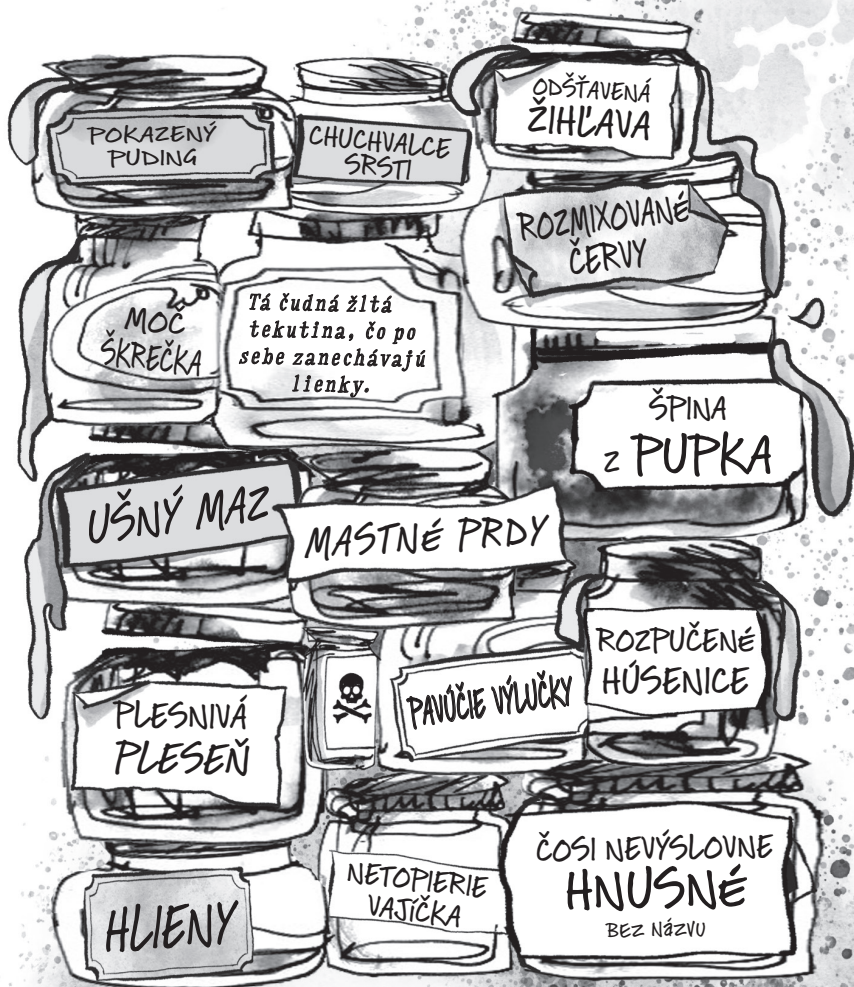 POKAZENÝ
PUDING
CHUCHVALCE
SRSTI
ODŠŤAVENÁ
ŽIHĽAVA
ROZMIXOVANÉ
ČERVY
MOČ
ŠKREČKA
Tá čudná žltá
tekutina, čo po
sebe zanechávajú
lienky.
ŠPINA
Z PUPKA
UŠNÝ MAZ
MASTNÉ PRDY
ROZPUČENÉ
HÚSENICE
PLESNIVÁ
PLESEŇ
PAVÚČIE VÝLUČKY
HLIENY
NETOPIERIE
VAJÍČKA
ČOSI NEVÝSLOVNE
HNUSNÉ
BEZ NÁZVU